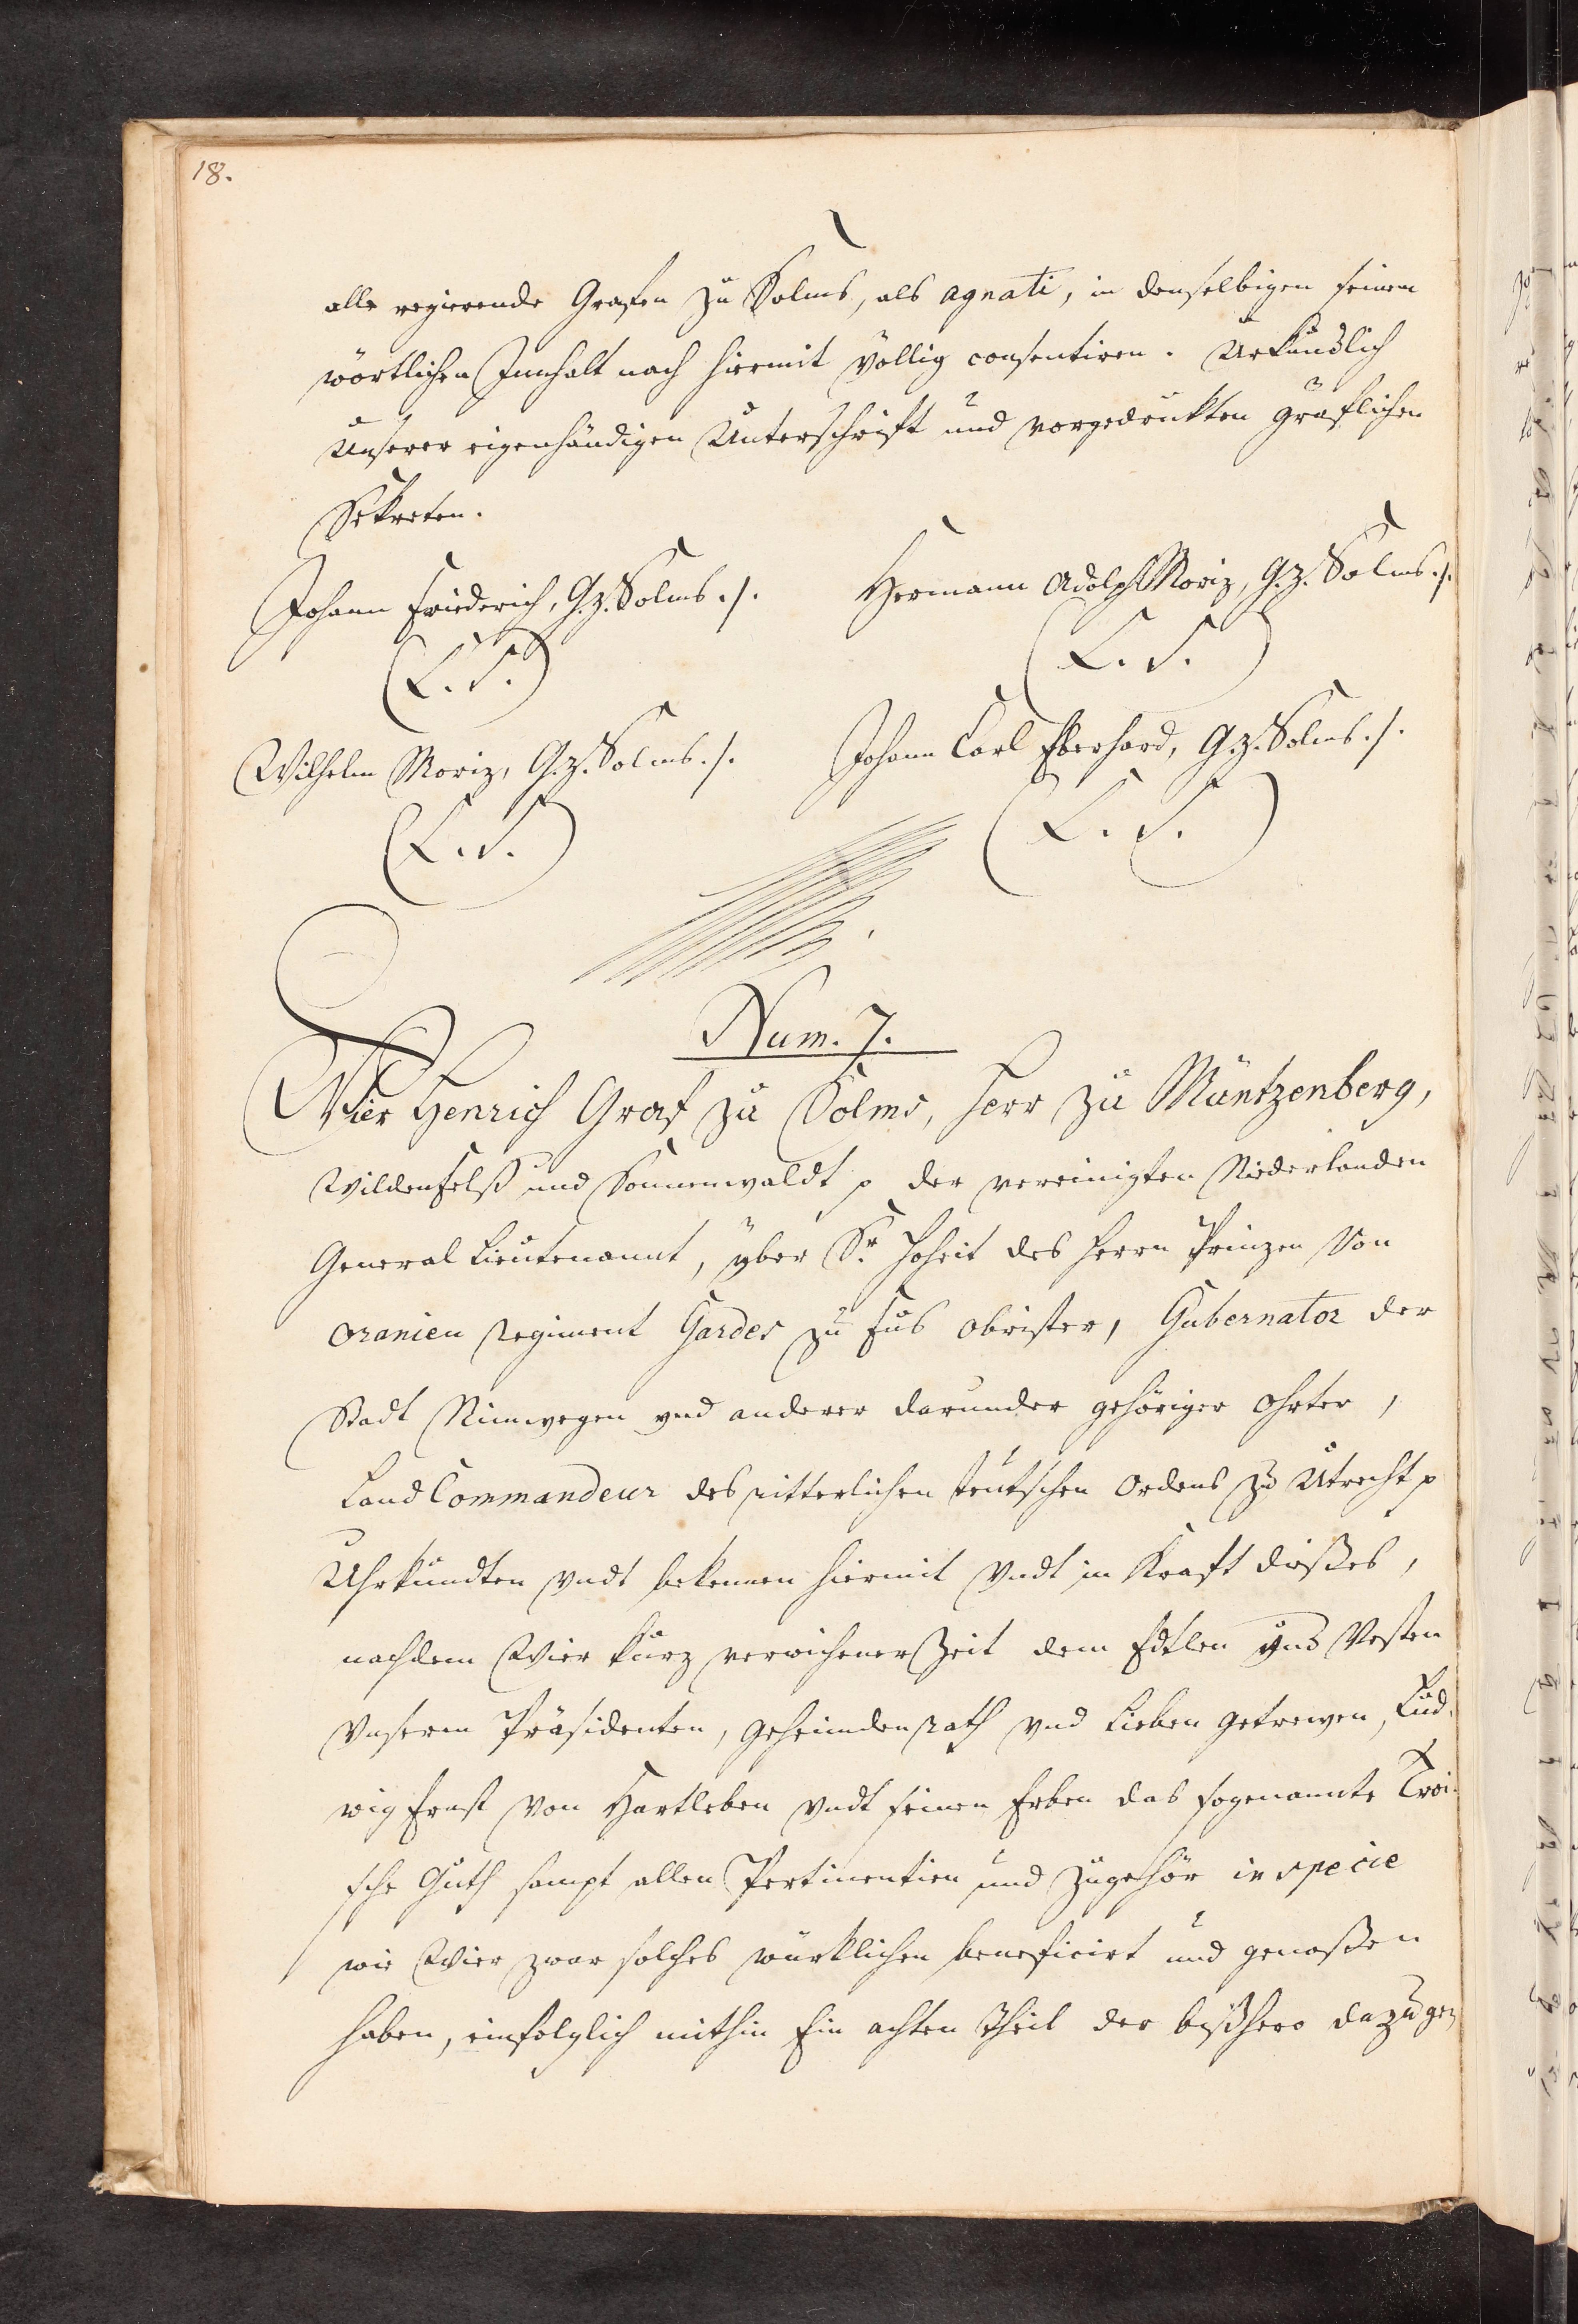 18.
alle regierende Grafen zu Solms, als agnati, in denselbigen seinem
wörtlichen Innhalt nach hiermit völlig consentiren. Urkundlich
Unserer eigenhändigen Unterschrifft und vorgedrukten gräflichen
Sekreten.
Johann Friederich, G. z. Solms ./. Hermann Adolph Moriz, G. z. Solms ./.
(L. S.) (L. S.)
Wilhelm Moriz, G. z. Solms ./. Johann Carl Eberhard, G. z. Solms ./.
(L. S.) (L. S.)
Num. 7.
Wier Henrich Graf zu Solms, Herr zu Müntzenberg,
Wildenfelß und Sonnenwaldt p der vereinigten Niederlanden
General Lieutenannt, über Sr. Hoheit des Herrn Prinzen Von
Oranien Regiment Gardes zu Fus Obrister, Gubernator der
Stadt Nimwegen vnd anderer darunder gehöriger Ohrter,
Land Commandeur des ritterlichen teutschen Ordens zu Utrecht p
Uhrkundten vndt bekennen hiermit vndt in Krafft dießes,
nachdem Wier kurz verwichener Zeit dem Edtlen vnd Vesten
Vnserm Präsidenten, geheimden Rath vnd Lieben getrewen, Lud-
wig Ernst von Hartleben vndt seinen Erben das sogenannte Troi-
sche Guth sampt allen Pertinentien und Zugehör in specie
wie Wier zwar solches würklichen beneficirt und genoßen
haben, einfolglich mithin Ein achten Theil der bißhero dazu ge-